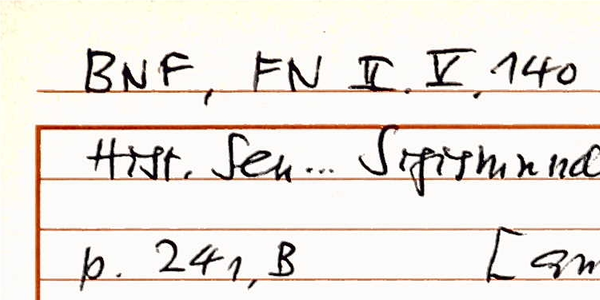 BNF, FN II. V. 140
Hist. Sen... Sigismund
p. 241, B [am